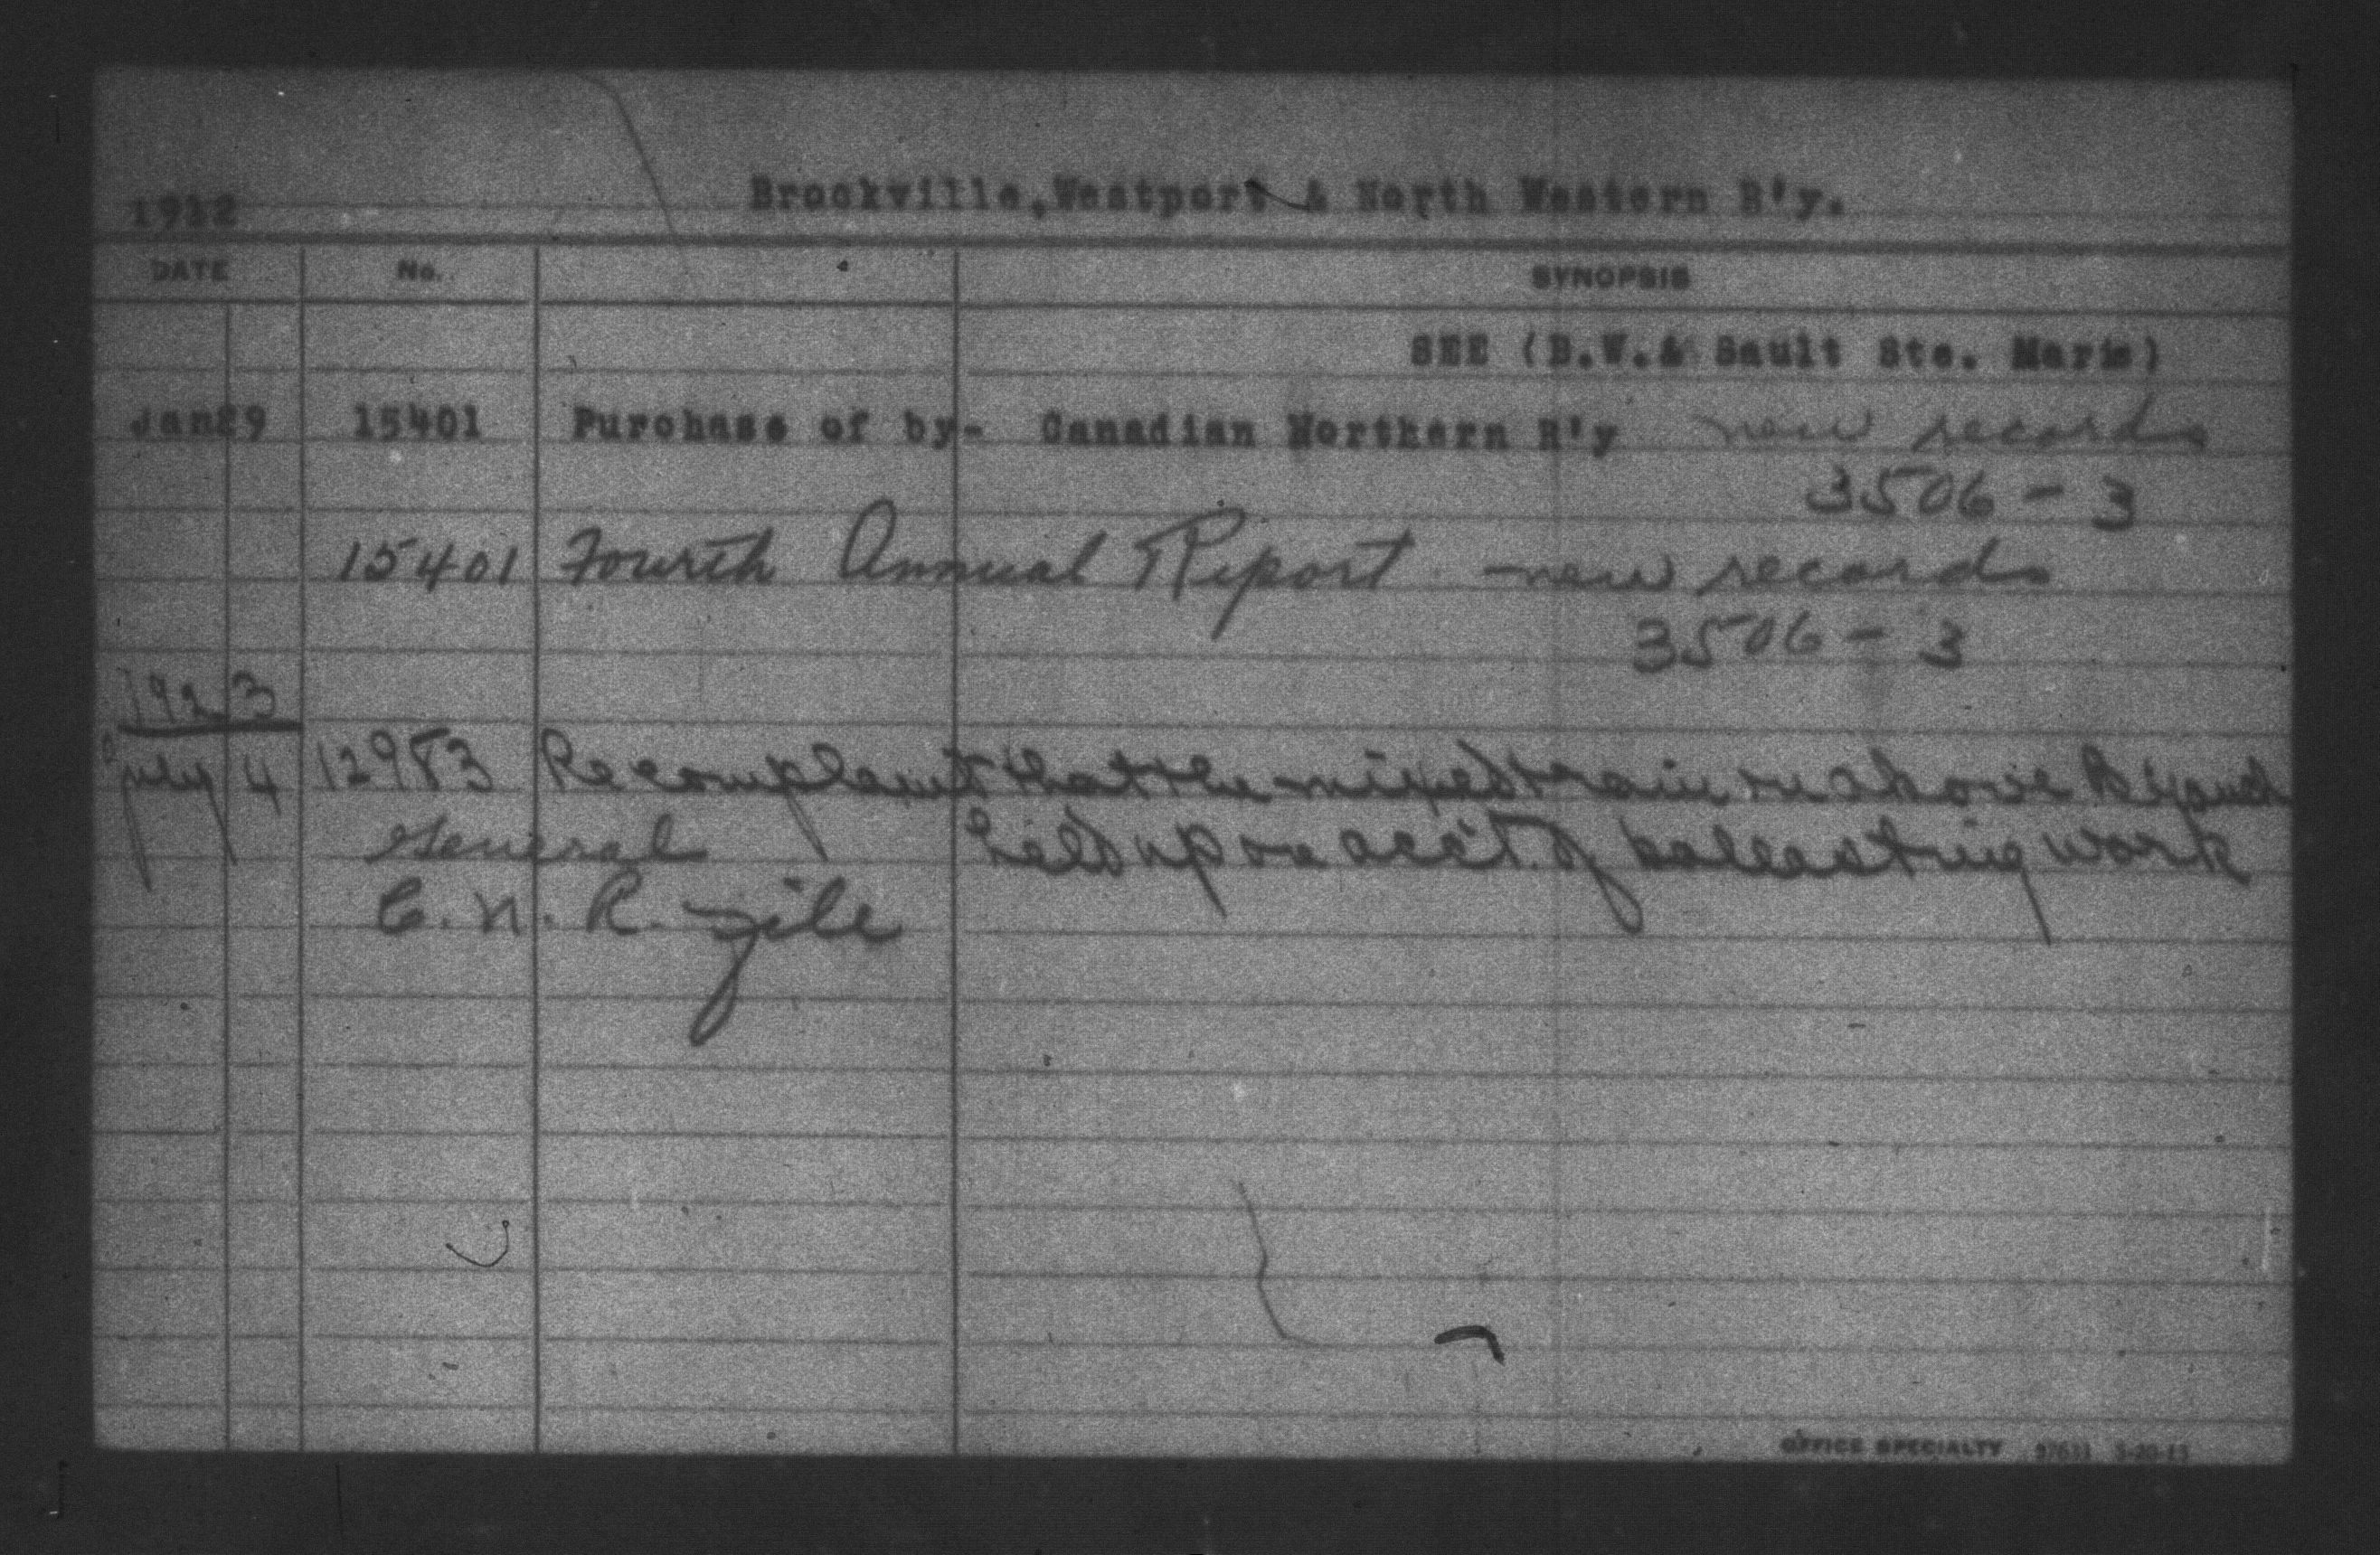 1912
Brockville, Westport & North Western R'y.
DATE No. SYNOPSIS
SEE (B.W.& Sault Ste. Marie)
Jan29 15401 Purchase of by- Canadian Northern R'y new records
3506-3
15401 Fourth Annual Report - new records
3506-3
1923
July 4 12983 Re complaint that the mixed train on above Ry
General held up on acc't. of ballasting work
C.N.R. file
OFFICE SPECIALTY